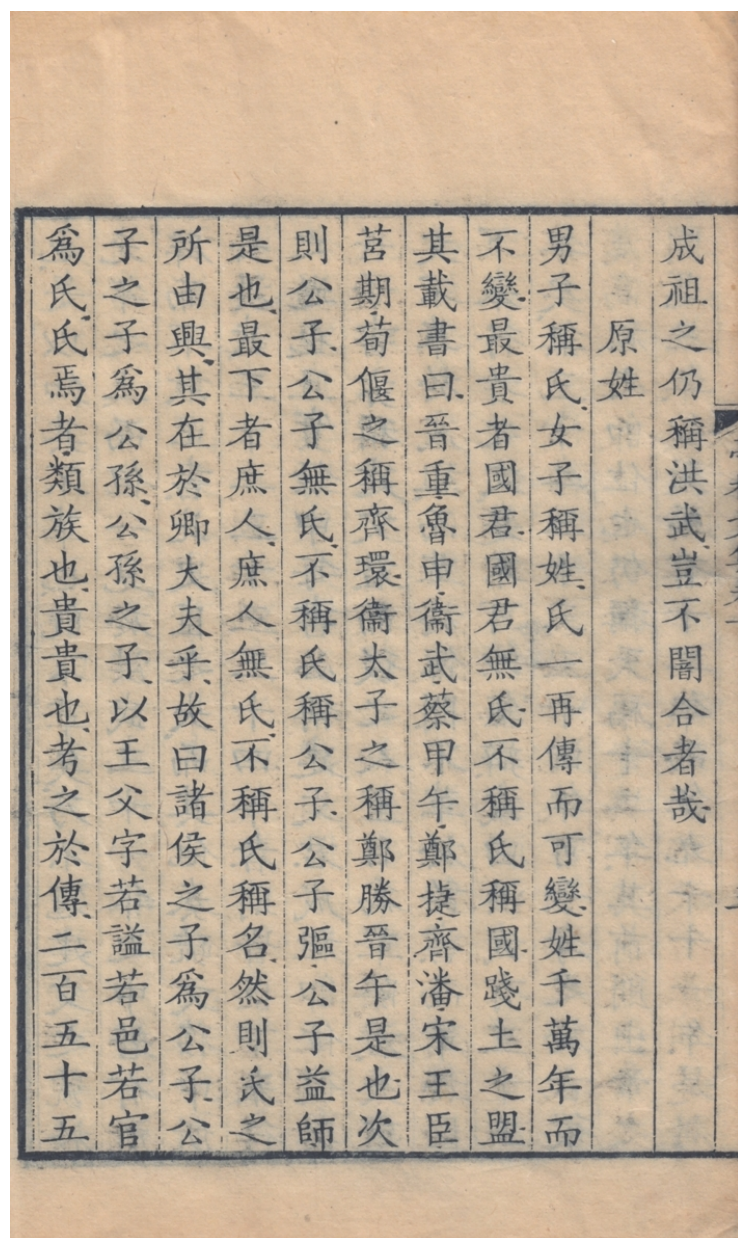 成祖之仍稱洪武豈不闇合者哉
原姓
男子稱氏女子稱姓氏一再傳而可變姓千萬年而
不變最貴者國君國君無氏不稱氏稱國踐土之盟
其載書曰晉重魯申衞武蔡甲午鄭捷齊潘宋王臣
莒期荀偃之稱齊環衞太子之稱鄭勝晉午是也次
則公子公子無氏不稱氏稱公子公子彄公子益師
是也最下者庶人庶人無氏不稱氏稱名然則氏之
所由興其在於卿大夫乎故曰諸侯之子爲公子公
子之子爲公孫公孫之子以王父字若謚若邑若官
爲氏氏焉者類族也貴貴也考之於傳二百五十五